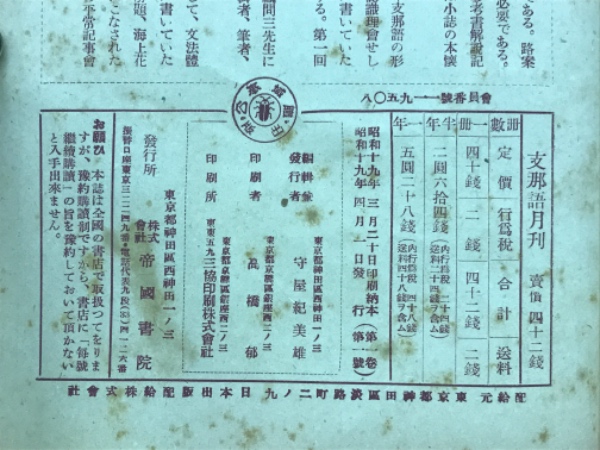 である。路案
必要である。
考書解說記
小誌の本懷
支那語の形
識理會せし
書いていた
る。第一回
問三先生に
者、筆者、
て、文法體
書いていた
題、海上花
こなされた
非常記事會
會員番號一一九五〇八
支那語月刊 賣價四十二錢
冊數 定價 行爲稅 合計 送料
一冊 四十錢 二錢 四十二錢 二錢
半年 二圓六拾四錢(內行爲稅 二十四錢 送料二十四錢ヲ含ム)
一年 五圓二十八錢(內行爲稅 四十八錢 送料四十八錢ヲ含ム)
昭和十九年三月二十日印刷納本(第一卷
昭和十九年四月一日發行(第一號)
東京都神田區西神田一ノ三
編輯兼發行者 守屋紀美雄
東京都京橋區銀座西二ノ三
印刷者 高橋郁
東京都京橋區銀座西二ノ三
印刷所 東東五九 三協印刷株式會社
東京都神田區西神田一ノ三
發行所 株式會社 帝國書院
お願ひ 本誌は全國の書店で取扱つてをりま
すが、豫約購讀制ですから、書店に「每號
繼續購讀」の旨を豫約しておいて頂かない
と入手出來ません。
配給元 東京都神田區淡路町二ノ九 日本出版配給株式會社